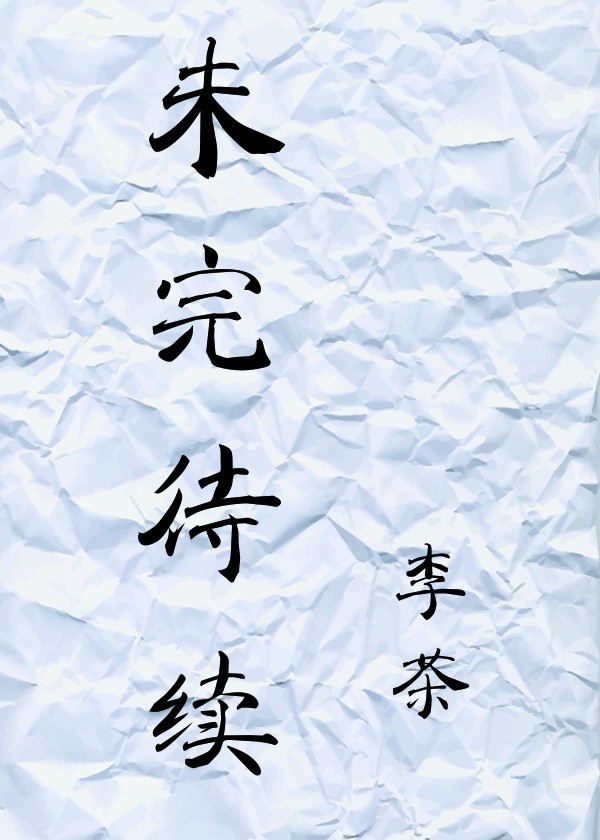 未完待续
李茶